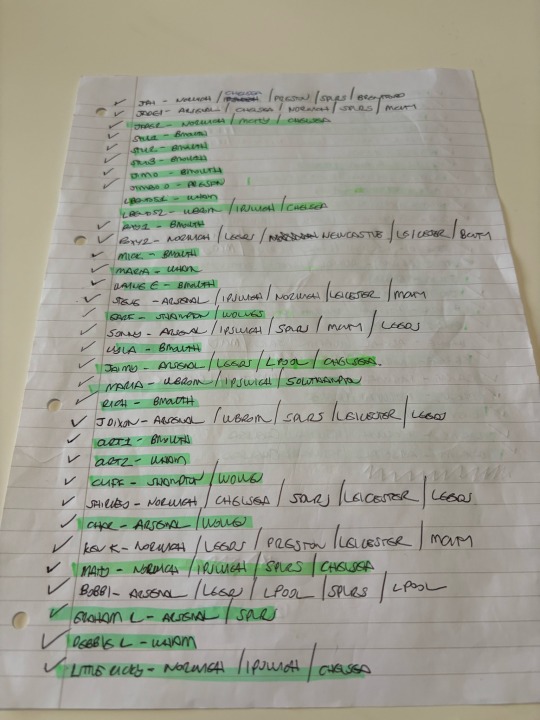 JPH - NORWICH / CHELSEA / PRESTON / SPURS / BRENTFORD
JADE1 - ARSENAL / CHELSEA / NORWICH / SPURS / MCITY
JADE2 - NORWICH / MCITY / CHELSEA
- BMOUTH
- BMOUTH
- BMOUTH
DIMO - BMOUTH
- PRESTON
- WHAM
- WBROM / IPSWICH / CHELSEA
- BMOUTH
- NORWICH / LEEDS / NEWCASTLE / LEICESTER / BMTH
MICK - BMOUTH
MARIA - WHAM
E - BMOUTH
STEVE - ARSENAL / IPSWICH / NORWICH / LEICESTER / MCITY
- SHAMPTON / WOLVES
SONNY - ARSENAL / IPSWICH / SPURS / MCITY / LEEDS
LYLA - BMOUTH
JAIMO - ARSENAL / LEEDS / LPOOL / CHELSEA.
MARIA - WBROM / IPSWICH / SOUTHAMPTON
RICH - BMOUTH
J DIXON - ARSENAL / WBROM / SPURS / LEICESTER / LEEDS
CLIFF1 - BMOUTH
- WHAM
CLIFF - SHAMPTON / WOLVES
SHIRLEY - NORWICH / CHELSEA / SPURS / LEICESTER / LEEDS
CHAR - ARSENAL / WOLVES
KEV K - NORWICH / LEEDS / PRESTON / LEICESTER / MCITY
- NORWICH / IPSWICH / SPURS / CHELSEA
BOBBI - ARSENAL / LEEDS / LPOOL / SPURS / LPOOL
GRAHAM L - ARSENAL / SPURS
DEBBIE L - WHAM
LITTLE RICKY - NORWICH / IPSWICH / CHELSEA